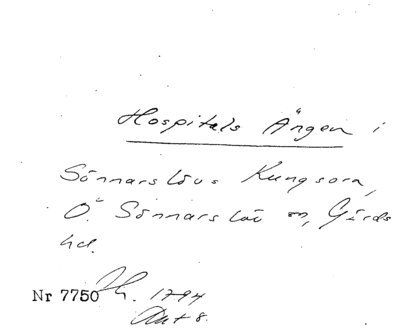 Hospitals Ängen i
Sönnarslövs Kungsora,
Ö. Sönnarslöv sn, Gärds
hd.
Nr 7750 Jh. 1794
Akt 8.